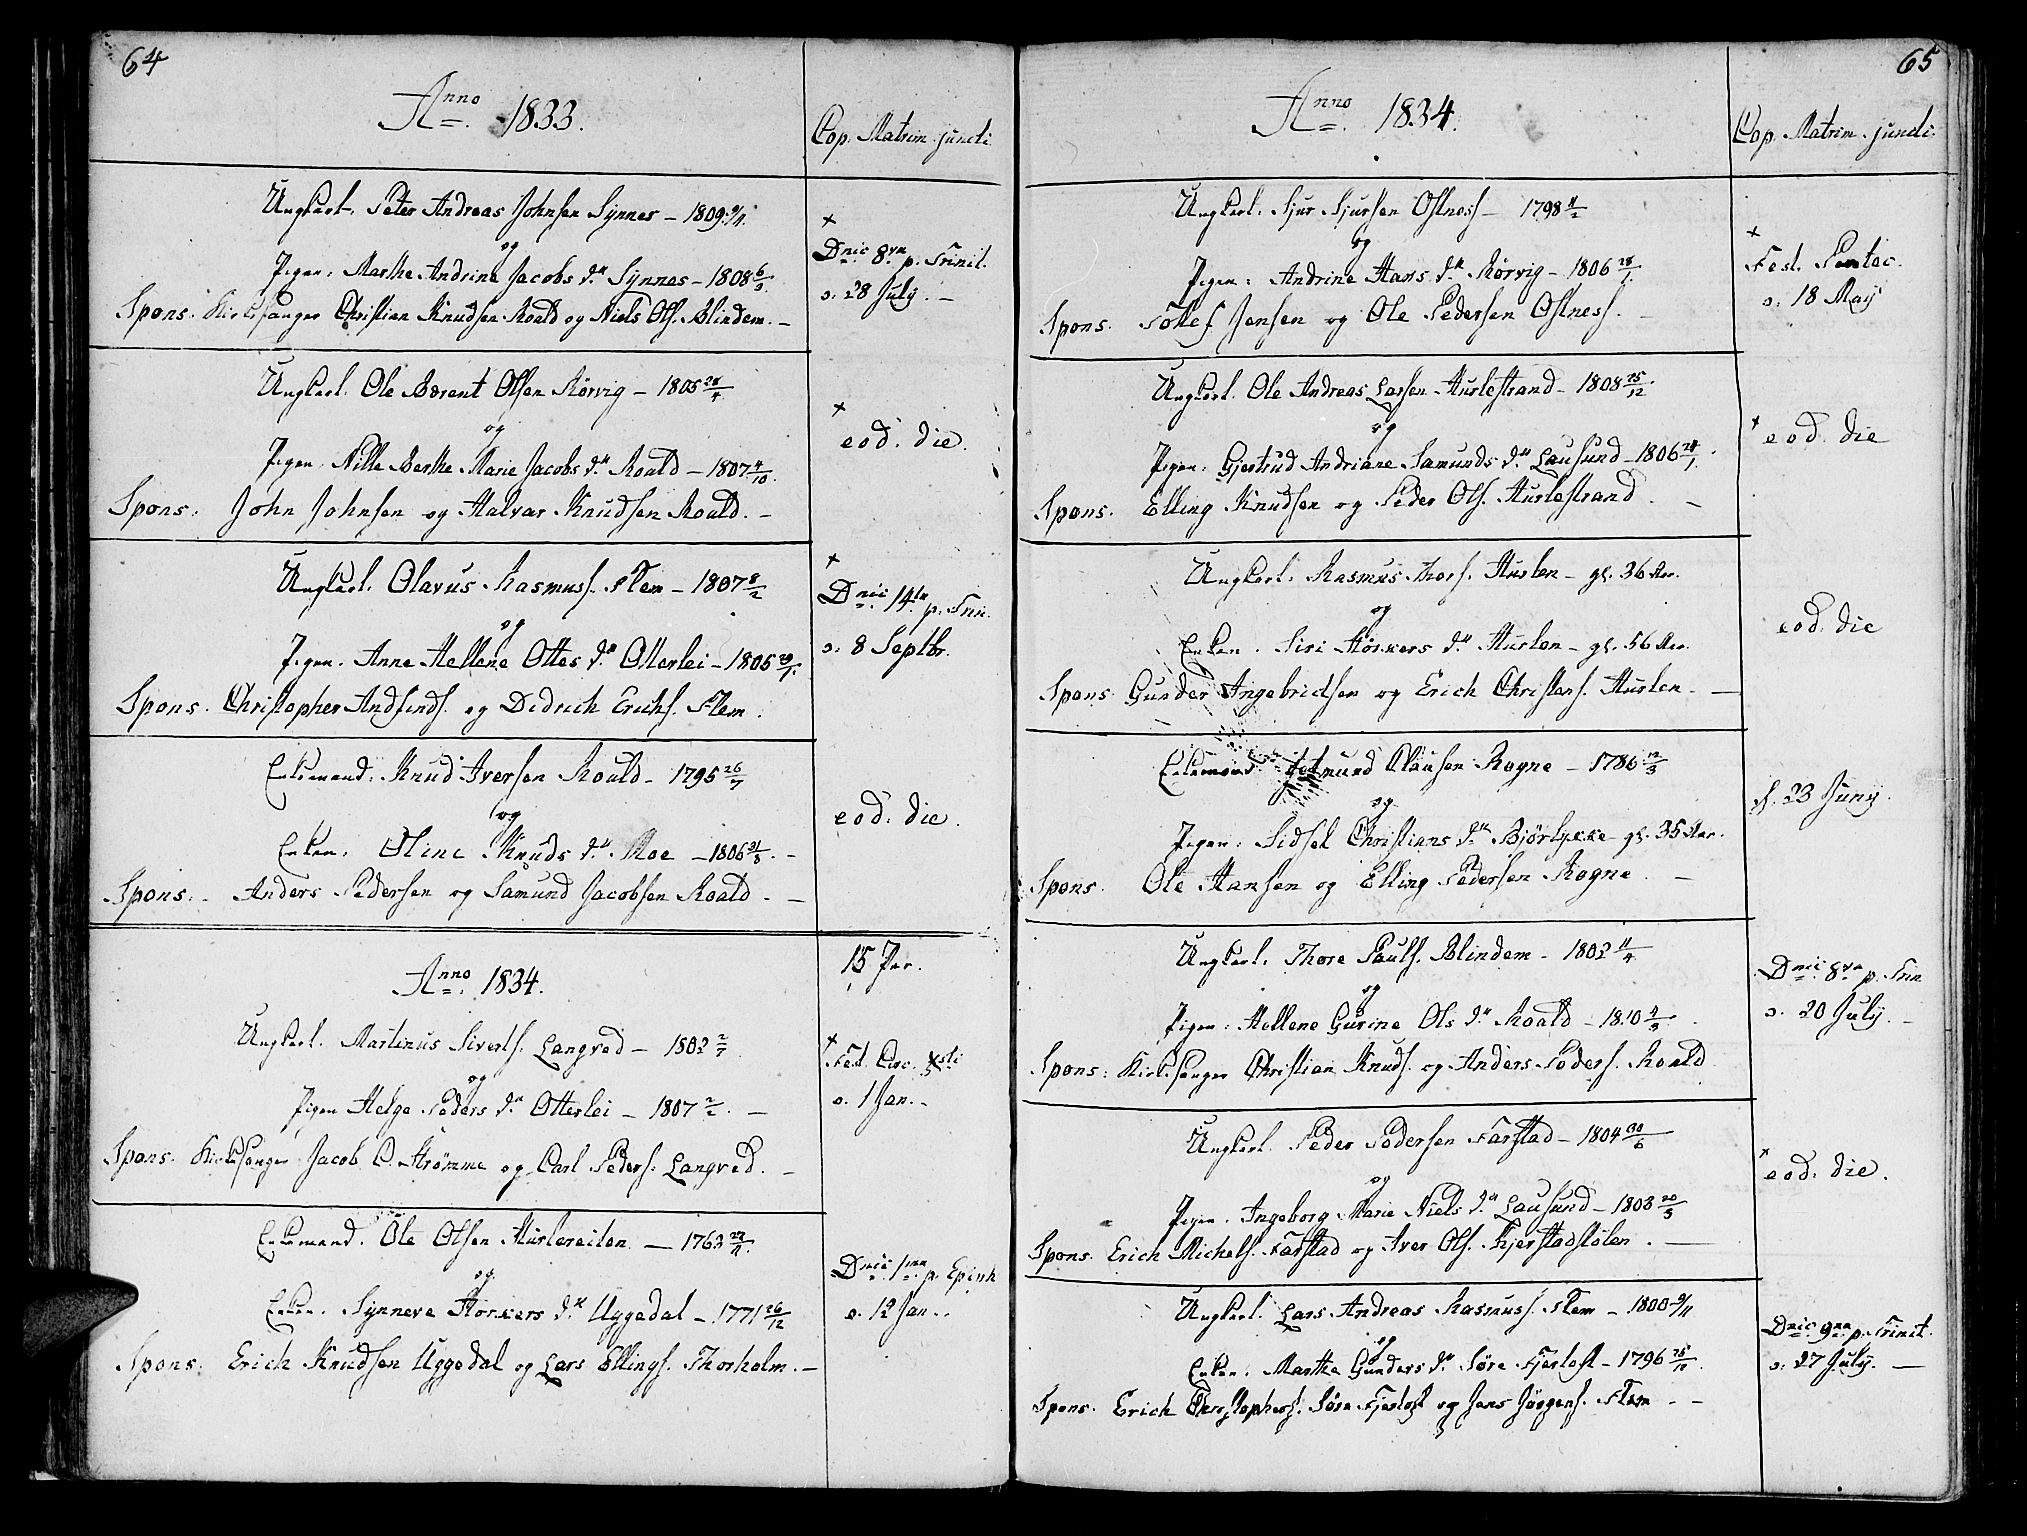 64
Anno 1833.
Cop. Matrim. juncti
Ungkarl. Peter Andreas Johnsen Synnes – 1809 9/4.
og
Pigen: Marthe Andrine Jacobs d.r Synnes – 1808 6/3.
Spons: Kirkesanger Christian Knudsen Roald og Niels Ols. Blindem. –
+
Dnic 8va p. Trinit.
o: 28 July. –
Ungkarl. Ole Bærent Olsen Rørvig – 1805 28/4
og
Pigen. Nille Berthe Marie Jacobs d.r Roald – 1807 4/10.
Spons: John Johnsen og Halvar Knudsen Roald. –
+
eod. die.
Ungkarl. Olavus Rasmuss. Flem – 1807 8/2
og
Pigen. Anne Hellene Ottes d.r Otterlei – 1805 29/1.
Spons. Christopher Andfinds. og Didrich Erichs. Flem.
+
Dnic 14ta p. Trin.
o: 8 Septbr.
Enkemand. Knud Iversen Roald – 1795 26/7
og
Enken. Oline Knuds d.r Roe – 1806 31/3. –
Spons. Anders Pedersen og Samund Jacobsen Roald. –
eod. die.
15 Par.
Anno 1834.
Ungkarl. Martinus Siverts. Langved – 1802 2/7
og
Pigen Helge Peders d.r Otterlei – 1807 2/2. –
Spons. Kirkesanger Jacob C. Strømme og Carl Peders. Langved. –
+
Fest. Circ. Xsti
o. 1 Jan. –
Enkemand. Ole Olsen Hurlereiten – 1763 27/11.
og
Enken. Synneve Storkers d.r Uggedal – 1771 26/12
Spons. Erich Knudsen Uggedal og Lars Ellings. Thorholm. –
Dnic 1ma p. Epiph
o. 12 Jan. .
65
Anno 1834.
Cop. Matrim. juncti.
Ungkarl. Sjur Sjursen Ostness – 1798 11/2
og
Pigen: Andrine Hans d.r Rørvig – 1806 28/1.
Spons. Tollef Jensen og Ole Pedersen Ostness. –
+
Fest. Pentec.
o: 18 May
Ungkarl. Ole Andreas Larsen Hurlestrand – 1808 25/12.
og
Pigen: Gjertrud Andriane Samunds d.r Lausund – 1806 24/1.
Spons. Elling Knudsen og Peder Ols. Hurlestrand. –
+ eod. die
Ungkarl. Rasmus Thors. Hurlen – gl. 36 Aar.
og
Enken. Siri Storkers d.r Hurlen – gl. 56 Aar.
Spons. Gunder Ingebrictsen og Erich Christens. Hurlen. –
eod. die
Enkemand Clausen Rogne – 1786 12/3
og
Pigen: Sidsel Christians d.r Bjørlykke – gl. 35 Aar.
Spons. Ole Hansen og Elling Pedersen Rogne. –
d. 23 Juny.
Ungkarl. Thore Pauls. Blindem – 1802 11/4
og
Pigen: Hellene Gurine Ols d.r Roald – 1810 4/3.
Spons: Kirkesanger Christian Knuds. og Anders Peders. Roald
Dnic 8va p. Trin
o. 20 July. –
Ungkarl. Peder Pedersen Farstad – 1804 30/6
og
Pigen. Ingeborg Marie Niels d.r Lausund – 1803 20/3
Spons. Erich Michels. Farstad og Iver Ols. Kjerstadstølen. –
+ eod. die.
Ungkarl. Lars Andreas Rasmuss. Flem – 1800 9/11
og
Enken. Marthe Gunders d.r Søre Fjertoft – 1796 25/10.
Spons. Erich Christophers. Søre Fjertoft og Jens Jørgens. Flem – –
Dnic 9na p. Trinit.
o. 27 July. –